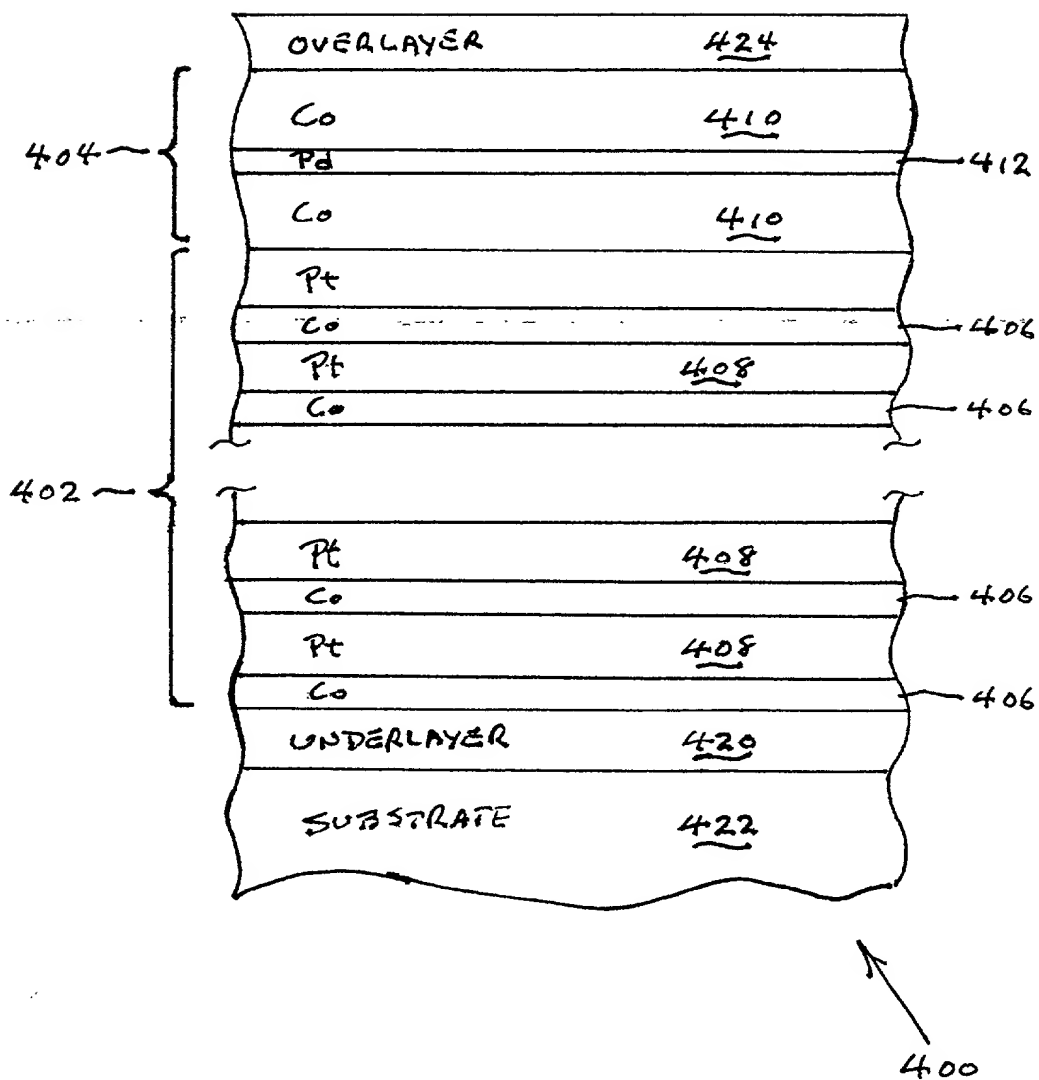 OVERLAYER 424
Co 410
404
Pd 412
Co 410
Pt
Co 406
Pt 408
Co 406
402
Pt 408
Co 406
Pt 408
Co 406
UNDERLAYER 420
SUBSTRATE 422
400